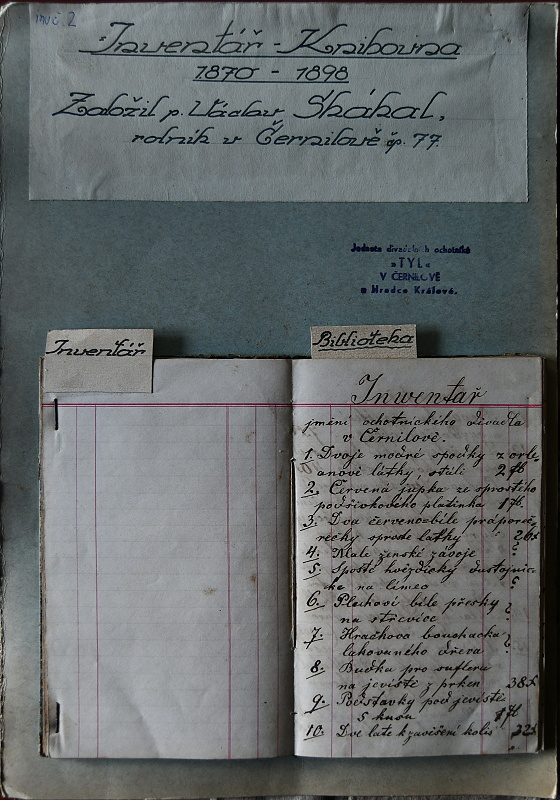 inv. č. 2
Inventář - Knihovna
1870 - 1898
Založil p. Václav Škákal,
rolník v Černilově čp. 77.
Jednota divadelních ochotníků
»TYL«
V ČERNILOVĚ
u Hradce Králové.
Inventář
Biblioteka
Inwentař
jmění ochotnického divadla
v Černilově.
1. Dvoje modré spodky z orle-
anové látky, stáli 2 zl
2. Červená jupka ze sprostého
podšívkového platínka 1 zl.
3. Dva červeno-bílé práporeč
rečky sprosté látky
4. Malé ženské závoje ?
5. Sprosté hvězdičky dustojnic-
ke na límec ?
6. Plechové bílé přesky
na střevíce ?
7. Hrachova bouchacka
lakovaného dřeva ?
8. Budka pro suflera
na jeviště z prken 38
9. Podstavky pod jeviště
5 kusu 1 zl
10. Dvě latě k zavěšení kolis 32